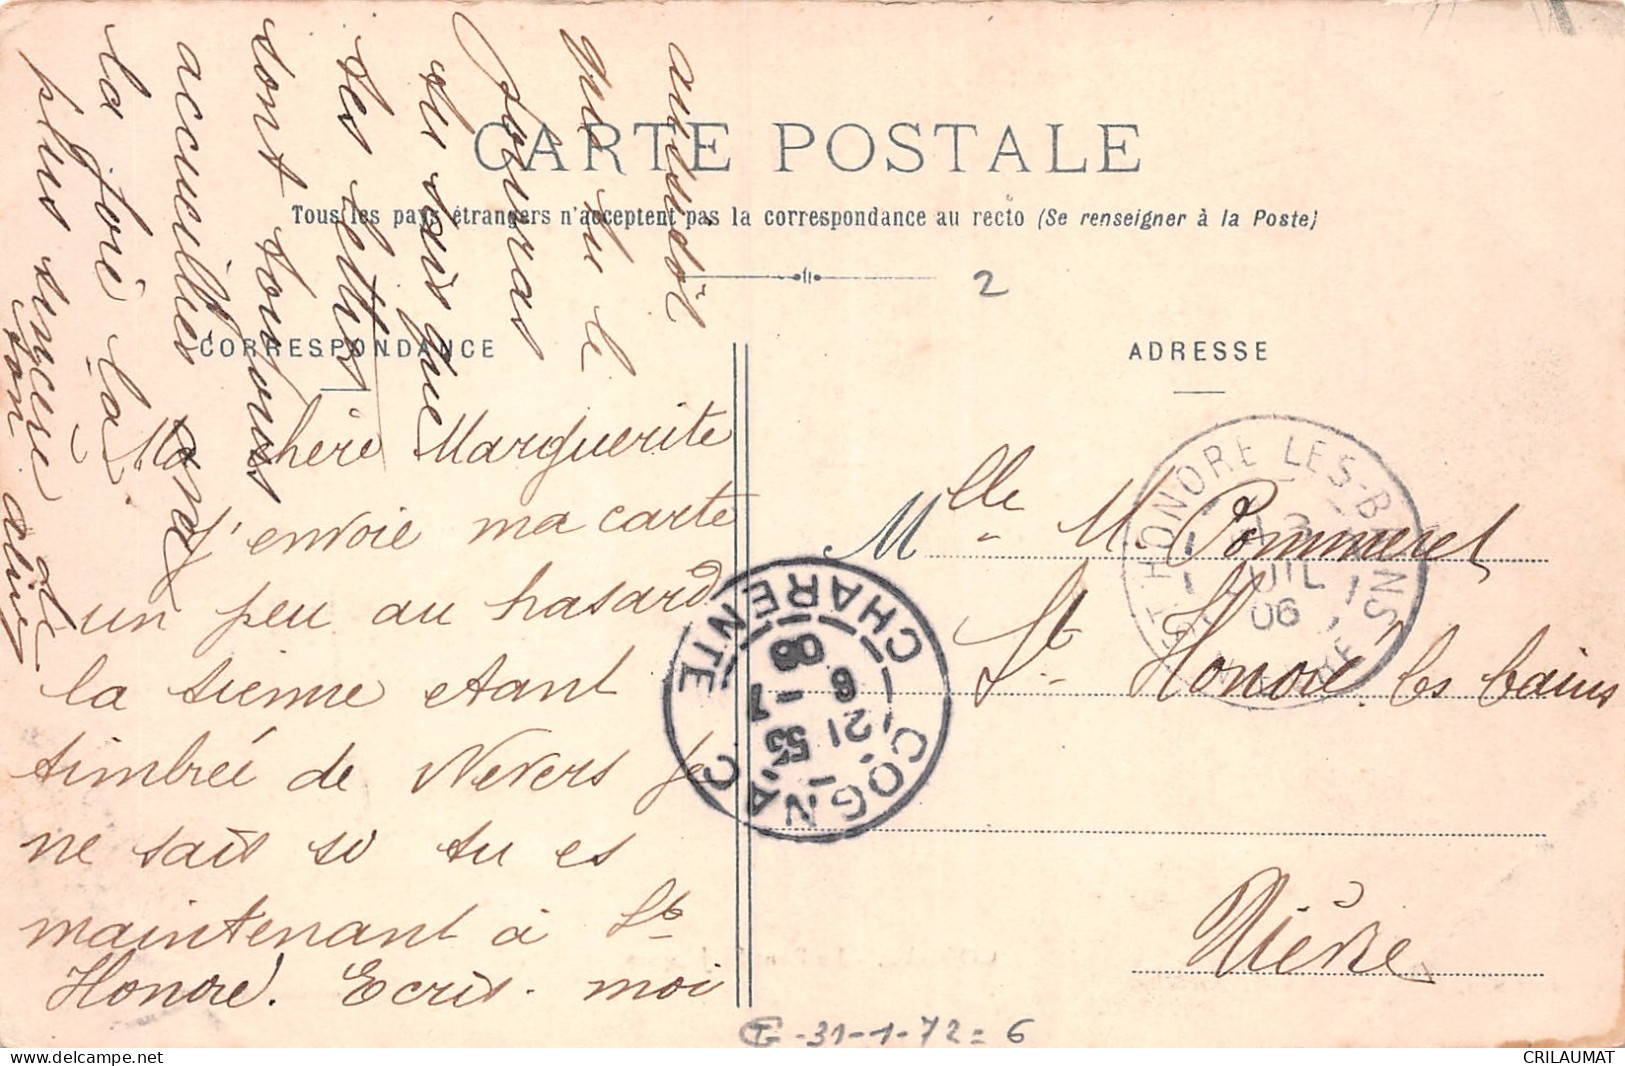 CARTE POSTALE
Tous les pays étrangers n'acceptent pas la correspondance au recto (Se renseigner à la Poste)
2
CORRESPONDANCE
ADRESSE
Ma chère Marguerite
J'envoie ma carte
un peu au hasard
la sienne etant
timbrée de Nevers je
ne sais si tu es
maintenant à St
Honoré. Ecris-moi
aussitôt
que tu le
pourras
tu sais que
tes lettres
sont toujours
accueillies avec
la joie la
plus sincère de
ton
Mlle M Pommeret
St Honoré les bains
Nièvre
ST HONORE LES-BAINS
JUIL
06
COGNAC
CHARENTE
21 53
6 - 7
06
-31-1-72=6
CRILAUMAT